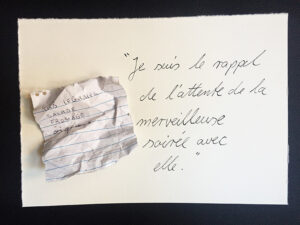 SALADE
FROMAGE
"Je suis le rappel
de l'attente de la
merveilleuse
soirée avec
elle."